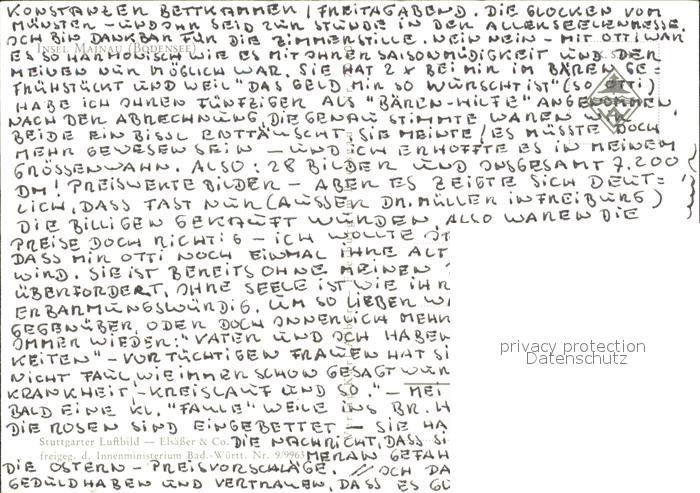 KONSTANZER BETTKAMMER / FREITAGABEND. DIE GLOCKEN VOM
MÜNSTER – UND IHR SEID ZUR STUNDE IN DER ALLERSEELENMESSE.
ICH BIN DANKBAR FÜR DIE ZIMMERSTILLE. NEIN NEIN – MIT OTTI WAR
INSEL MAINAU (BODENSEE)
ES SO HARMONISCH WIE ES MIT IHRER SAISONMÜDIGKEIT UND DER
MEINEN NUR MÖGLICH WAR. SIE HAT 2 x BEI MIR IM BÄREN GE=
FRÜHSTÜCKT UND WEIL "DAS GELD MIR SO WURSCHT IST" (SO OTTI)
HABE ICH IHREN FÜNFZIGER ALS "BÄREN-HILFE" ANGENOMMEN.
NACH DER ABRECHNUNG, DIE GENAU STIMMTE WAREN WIR
BEIDE EIN BISSL ENTTÄUSCHT, SIE MEINTE, ES MÜSSTE DOCH
MEHR GEWESEN SEIN – UND ICH ERHOFFTE ES IN MEINEM
GRÖSSENWAHN. ALSO: 28 BILDER UND INSGESAMT 7.200
DM! PREISWERTE BILDER – ABER ES ZEIGTE SICH DEUT=
LICH, DASS FAST NUR (AUSSER DR. MÜLLER IN FREIBURG)
DIE BILLIGEN GEKAUFT WURDEN, ALSO WAREN DIE
PREISE DOCH RICHTIG – ICH WOLLTE
DASS MIR OTTI NOCH EINMAL IHRE ALT
WIRD. SIE IST BEREITS OHNE MEINEN
ÜBERFORDERT, IHRE SEELE IST WIE IHR
ERBARMUNGSWÜRDIG. UM SO LIEBER WA
GEGENÜBER, ODER DOCH INNERLICH MEHR
IMMER WIEDER: "VATER UND ICH HABEN
KEITEN" – VOR TÜCHTIGEN FRAUEN HAT SI
NICHT FAUL, WIE IMMER SCHON GESAGT WUR
KRANKHEIT, – KREISLAUF UND SO." – MEI
BALD EINE KL. "FAULE" WEILE INS BR. H
DIE ROSEN SIND EINGEBETTET – SIE HA
Stuttgarter Luftbild — Elsäßer & Co. DIE NACHRICHT, DASS SI
freigeg. d. Innenministerium Bad.-Württ. Nr. 9/9963 MERAN GEFAH
DIE OSTERN – PREISVORSCHLÄGE. // ICH DA
GEDULD HABEN UND VERTRAUEN, DASS ES GU
privacy protection
Datenschutz